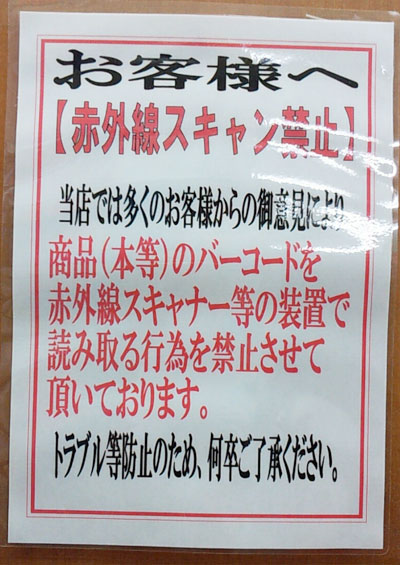 お客様へ
【赤外線スキャン禁止】
当店では多くのお客様からの御意見により
商品(本等)のバーコードを
赤外線スキャナー等の装置で
読み取る行為を禁止させて
頂いております。
トラブル等防止のため、何卒ご了承ください。